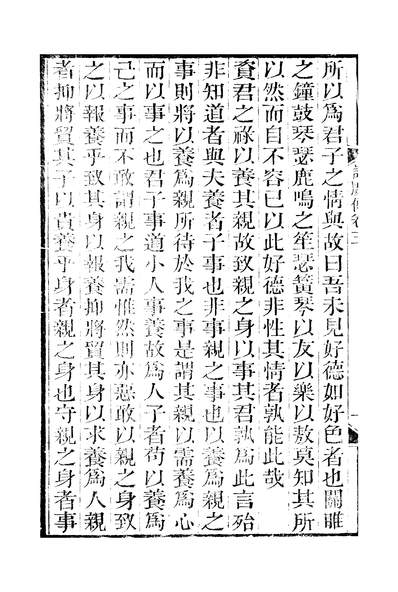 所以爲君子之情與故曰吾未見好德如好色者也關雎
之鐘鼓琴瑟鹿鳴之笙瑟簧琴以友以樂以敖莫知其所
以然而自不容已以此好德非性其情者孰能此哉
資君之祿以養其親故致親之身以事其君孰爲此言殆
非知道者與夫養者子事也非事親之事也以養爲親之
事則將以養爲親所待於我之事是謂其親以需養爲心
而以事之也君子事道小人事養故爲人子者苟以養爲
己之事而不敢謂親之我需惟然則亦惡敢以親之身致
之以報養乎致其身以報養抑將貿其身以求養爲人親
者抑將貿其子以責養乎身者親之身也守親之身者事
詩廣傳卷三